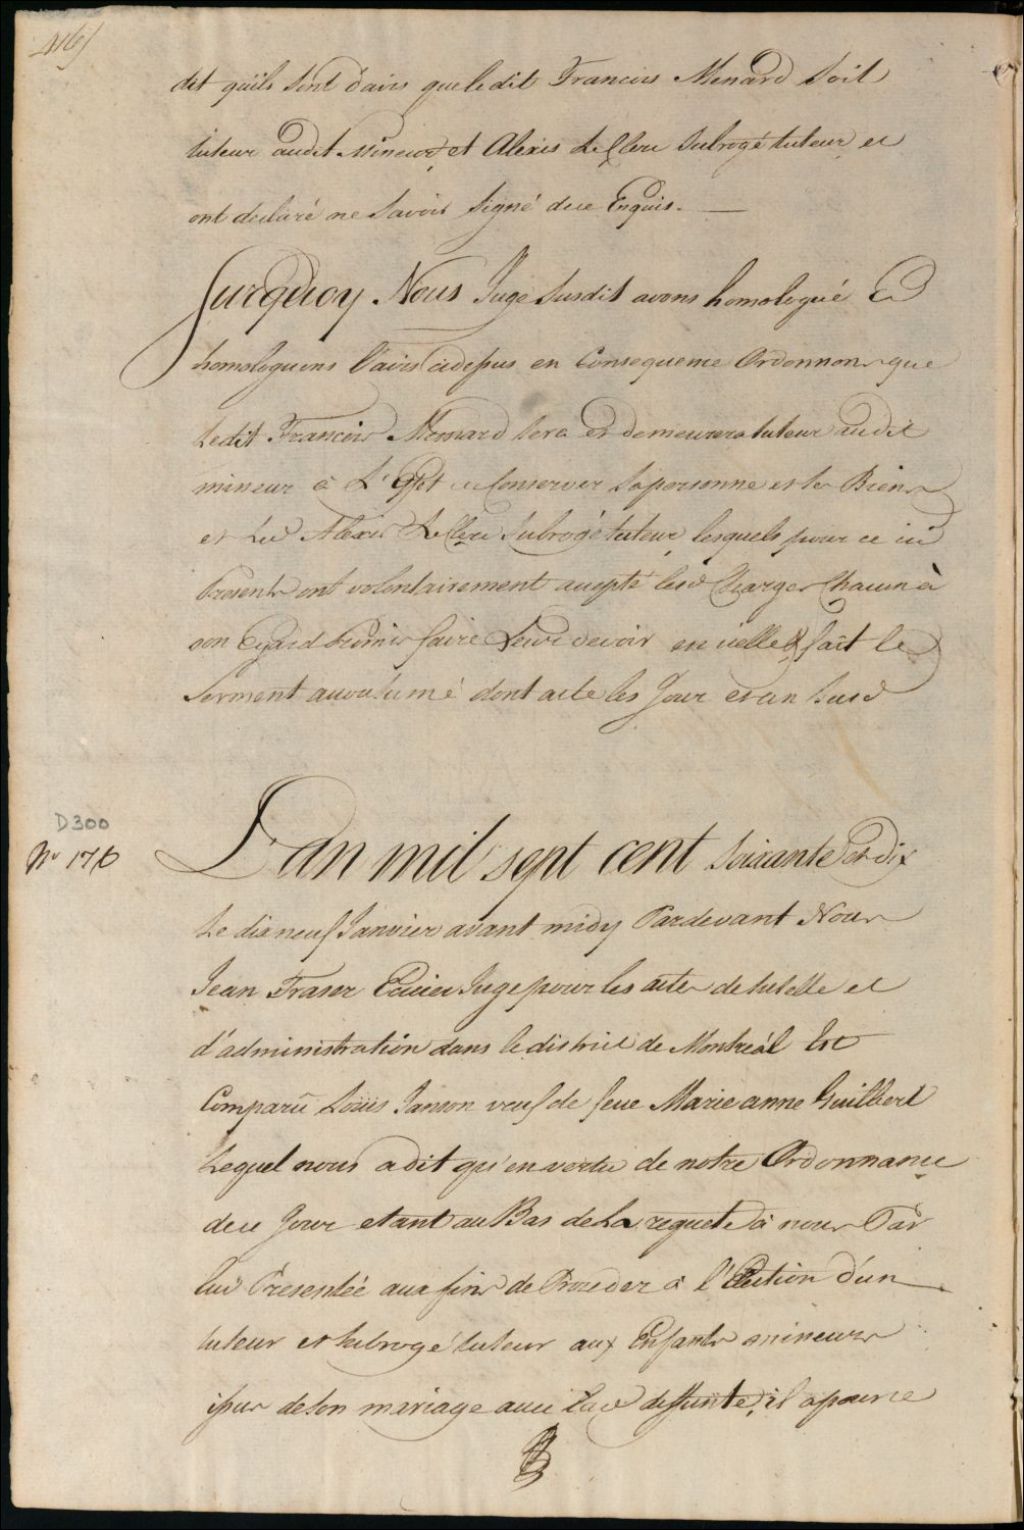 416)
dit quils sont d'avis que le dit Francois Menard soit
tuteur audit Mineur, et Alexis LeClerc subrogé tuteur, et
ont declaré ne savoir signé de ce Enquis.
Surquoy Nous Juge susdit avons homologué Et
homologuons l'avis cidessus en Consequence Ordonnons que
Ledit Francois Menard sera et demeurera tuteur audit
mineur à L'Effet de Conserver sa personne et ses Biens
et Led Alexis LeClerc Subrogé tuteur, lesquels pour ce icy
Presents ont volontairement accepté lesd Charges Chacun à
son Egard Promis faire Leur devoir en icelle & fait le
Serment accoutumé dont acte les Jour et an susd
D300
No 176
L'an mil sept cent soixante et dix
Le dix neuf Janvier avant midy Pardevant Nous
Jean Fraser Ecuier Juge pour les actes de tutelle et
d'administration dans le district de Montréal Est
Comparû Loüis Janson veuf de feue Marie anne Guilbert
Lequel nous a dit qu'en vertu de notre Ordonnance
de ce Jour etant au Bas de La requete à nous Par
lui Présentée aux fins de Proceder à l'Election d'un
tuteur et subrogé tuteur aux Enfants mineurs
issus de son mariage avec lad deffunte, il a pour ce